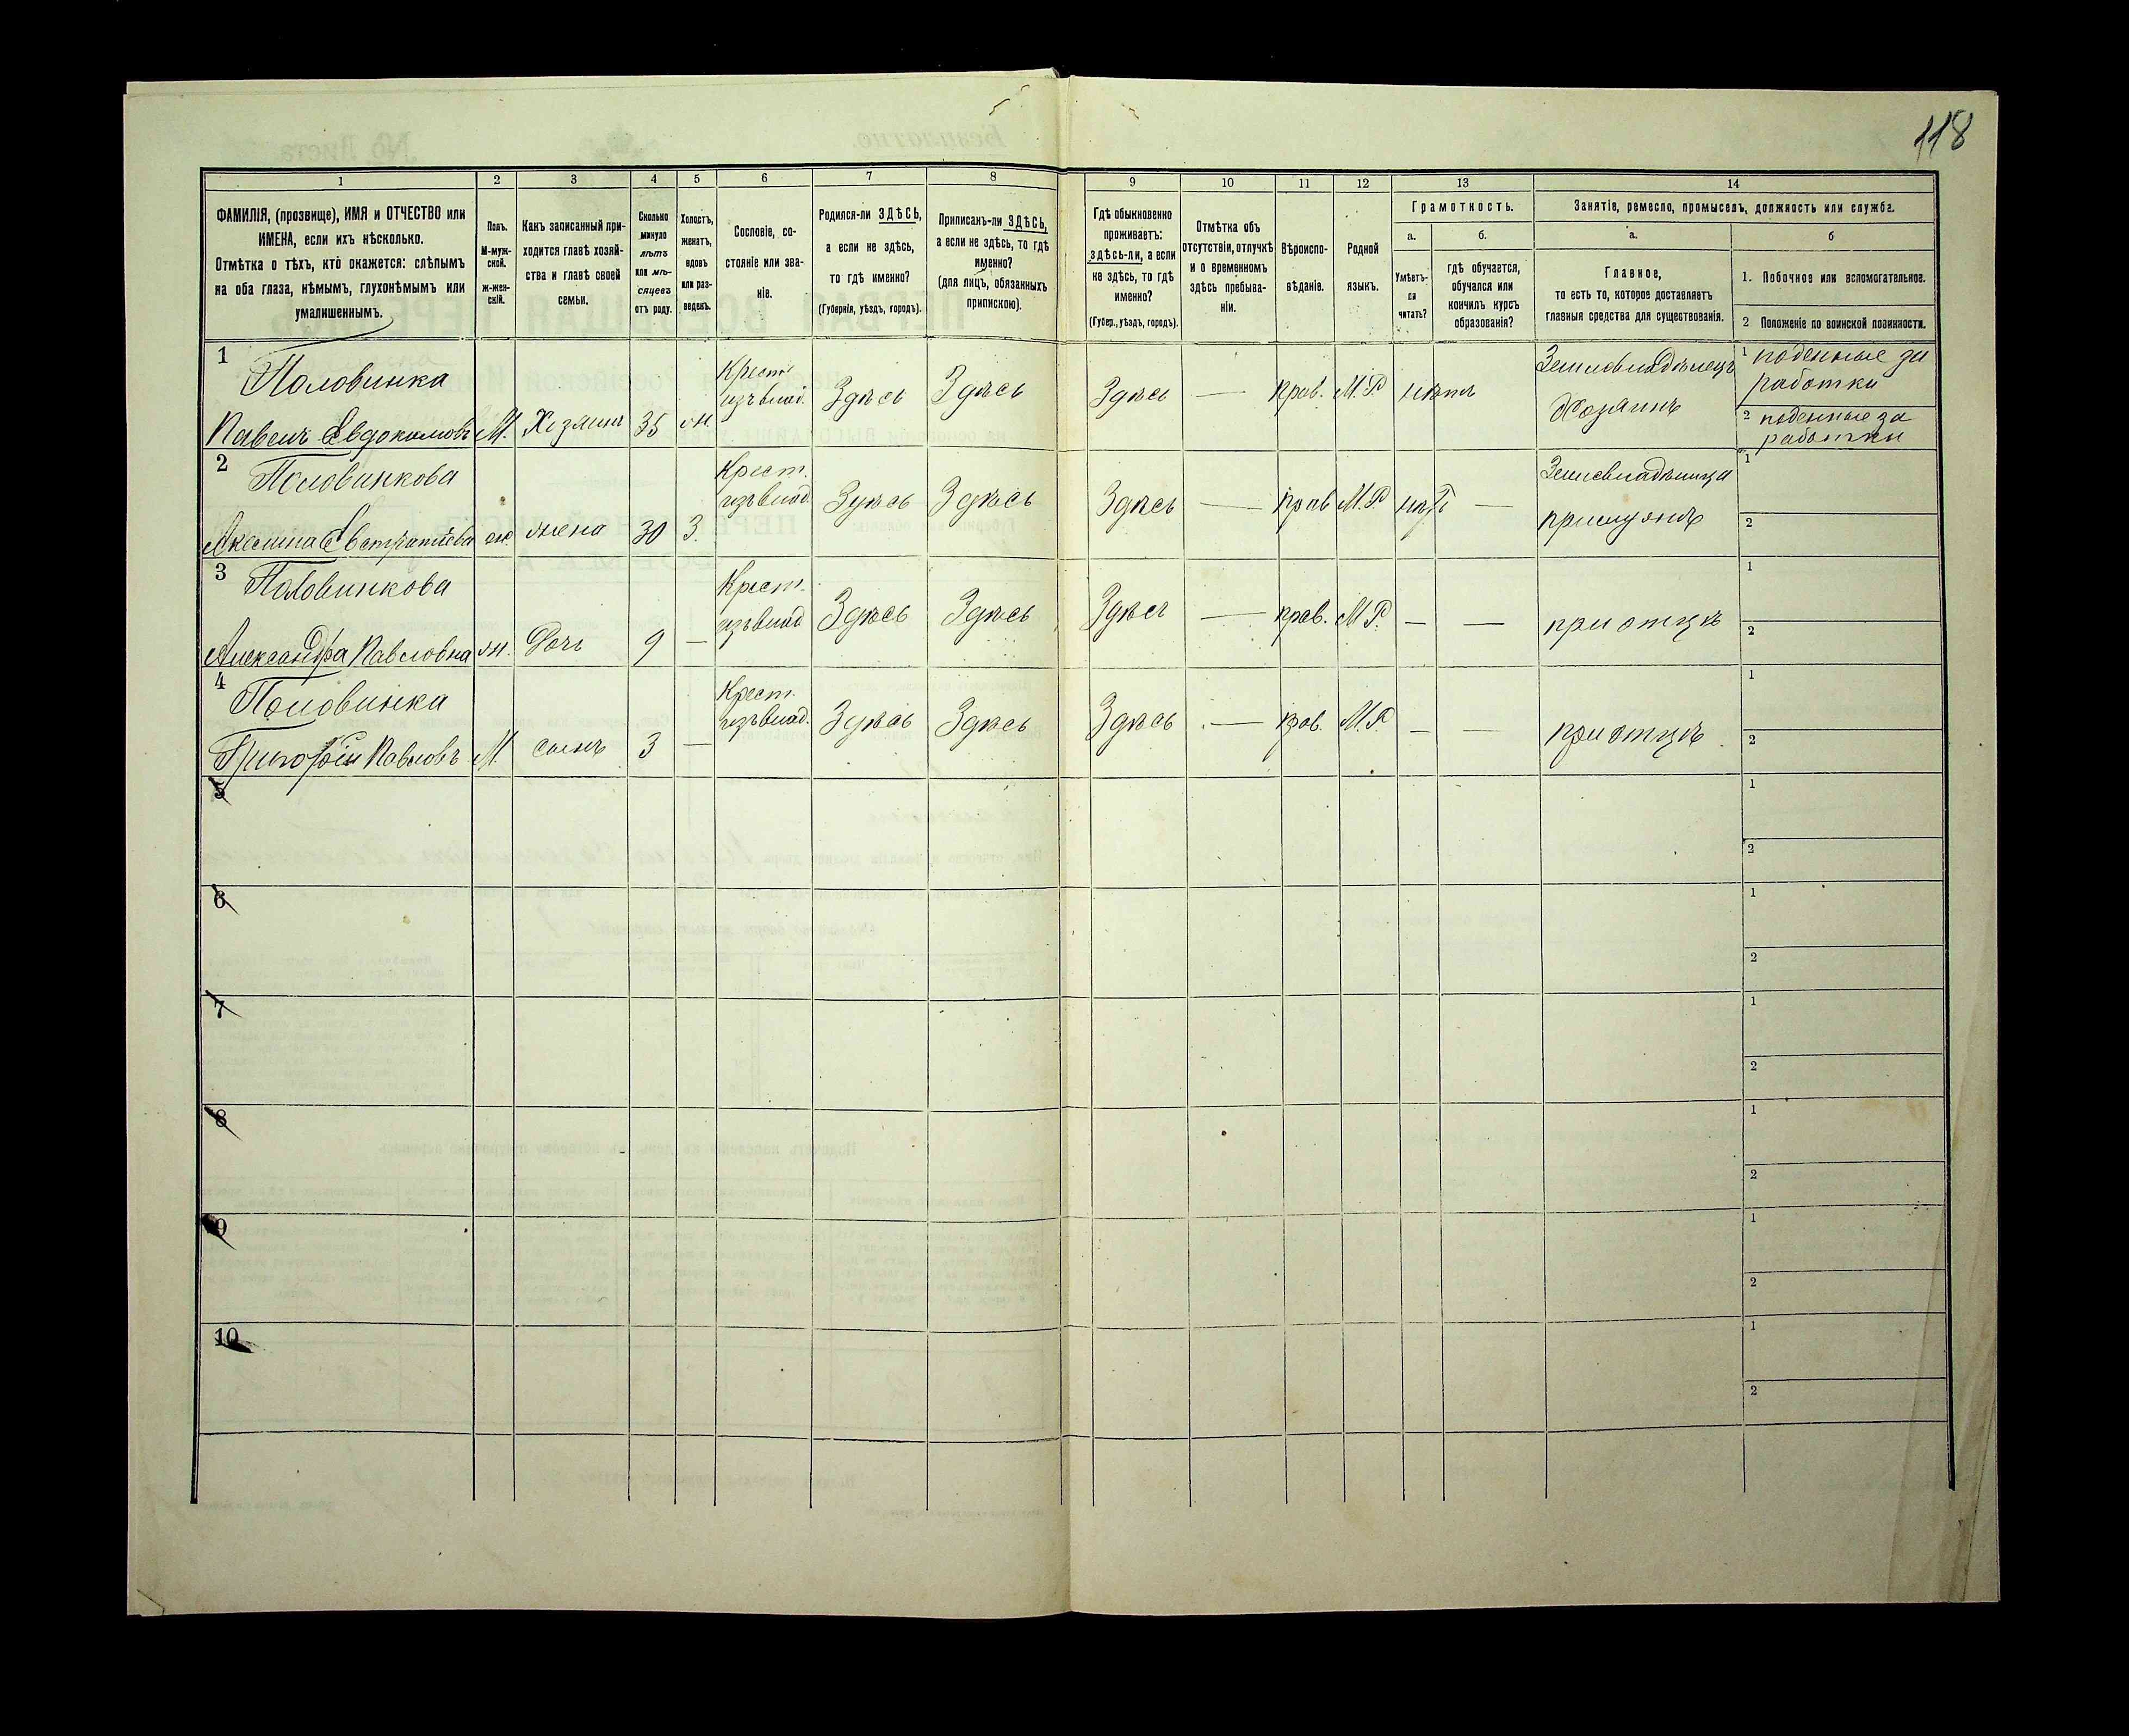 118
1 2 3 4 5 6 7 8 9 10 11 12 13 14
ФАМИЛІЯ, (прозвище), ИМЯ и ОТЧЕСТВО или
ИМЕНА, если ихъ нѣсколько.
Отмѣтка о тѣхъ, кто окажется: слѣпымъ
на оба глаза, нѣмымъ, глухонѣмымъ или
умалишеннымъ.
Полъ.
М-муж-
ской.
ж-жен-
скій.
Какъ записанный при-
ходится главѣ хозяй-
ства и главѣ своей
семьи.
Сколько
минуло
лѣтъ
или мѣ-
сяцевъ
отъ роду.
Холостъ,
женатъ,
вдовъ
или раз-
веденъ.
Сословіе, со-
стояніе или зва-
ніе.
Родился-ли ЗДѢСЬ,
а если не здѣсь,
то гдѣ именно?
(Губернія, уѣздъ, городъ).
Приписанъ-ли ЗДѢСЬ,
а если не здѣсь, то гдѣ
именно?
(для лицъ, обязанныхъ
припискою).
Гдѣ обыкновенно
проживаетъ:
здѣсь-ли, а если
не здѣсь, то гдѣ
именно?
(Губер., уѣздъ, городъ).
Отмѣтка объ
отсутствіи, отлучкѣ
и о временномъ
здѣсь пребыва-
ніи.
Вѣроиспо-
вѣданіе.
Родной
языкъ.
Грамотность.
а.
Умѣетъ-
ли
читать?
б.
гдѣ обучается,
обучался или
кончилъ курсъ
образованія?
Занятіе, ремесло, промыселъ, должность или служба.
а.
Главное,
то есть то, которое доставляетъ
главныя средства для существованія.
б
1. Побочное или вспомогательное.
2 Положеніе по воинской повинности.
1 Половинка Крест. Земловладѣлецъ 1 поденные за
изъ влад. Здѣсь Здѣсь Здѣсь — прав. М.Р. нѣтъ работки
Павелъ Евдокимовъ М. Хозяинъ 35 ж. Хозяинъ 2 поденные за
работки
2 Половинкова Крест. 1
изъ влад. Здѣсь Здѣсь Здѣсь — прав М.Р. нѣт —
Евстратіева ж. жена 30 З. при мужѣ 2
3 Половинкова Крест. 1
изъ влад Здѣсь Здѣсь Здѣсь — прав. М.Р. — — при отцѣ
Александра Павловна ж. Дочь 9 — 2
4 Половинка Крест. 1
изъ влад. Здѣсь Здѣсь Здѣсь — прав. М.Р. — — при отцѣ
Григорій Павловъ М. сынъ 3 — 2
5 1
2
6 1
2
7 1
2
8 1
2
9 1
2
10 1
2